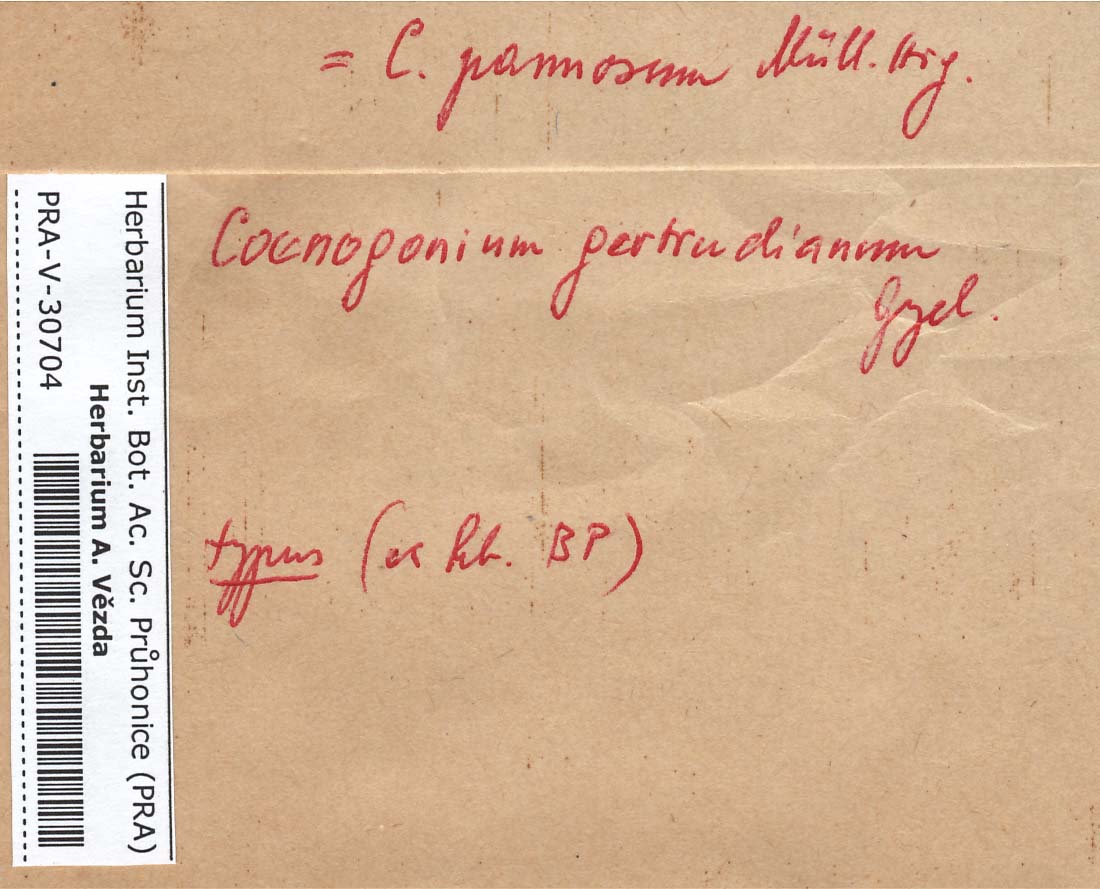 = C. pannosum Müll. Arg.
Coenogonium gertrudianum
Gyel.
typus (ex hb. BP)
Herbarium Inst. Bot. Ac. Sc. Průhonice (PRA)
Herbarium A. Vězda
PRA-V-30704